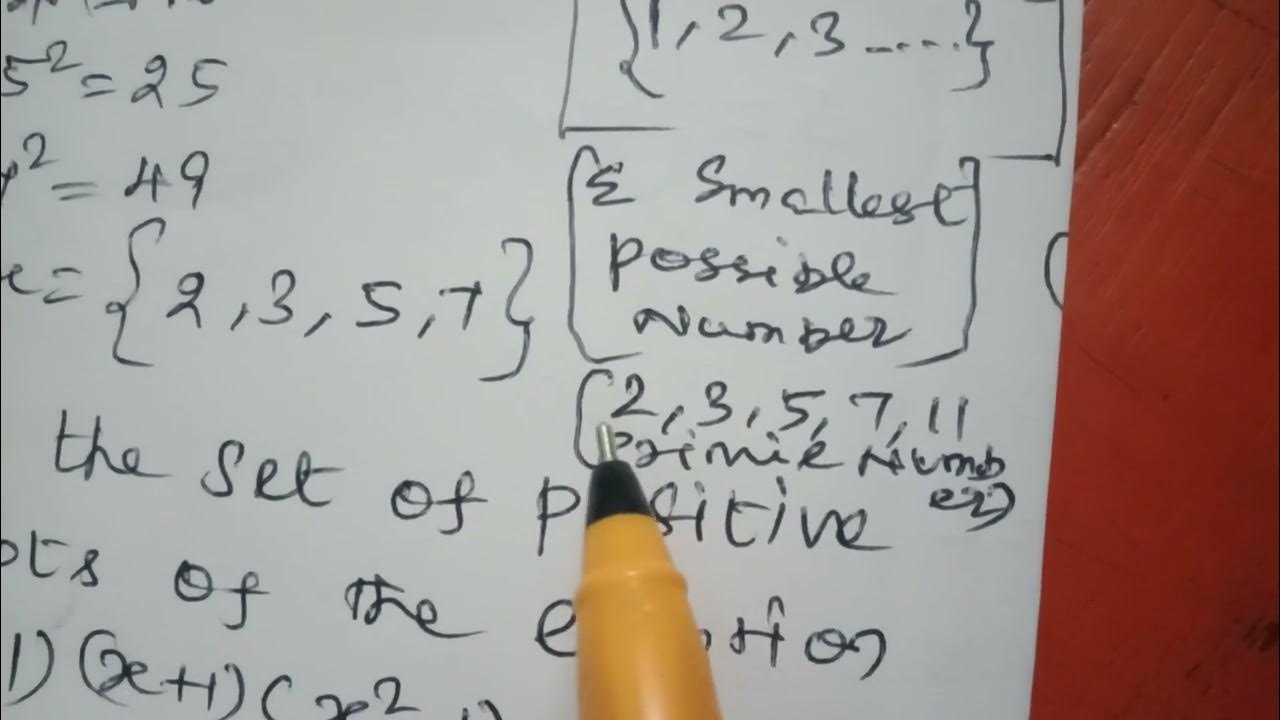 {1, 2, 3 .....}
5² = 25
² = 49
= {2, 3, 5, 7}
[Σ Smallest
Possible
Number]
(2, 3, 5, 7, 11
Prime Numb
er)
the set of positive
of the
1) (x+1) (x²